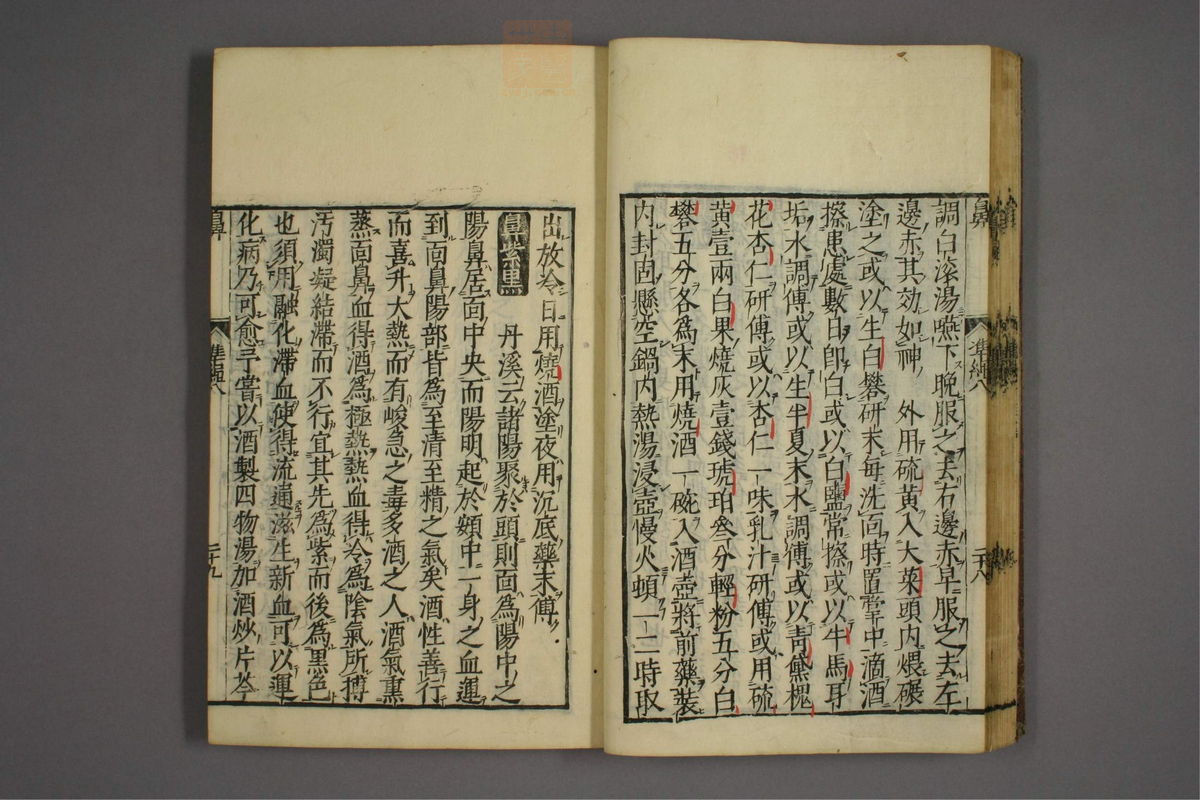 調白滚湯嚥下晚服之去右邊赤早服之去左
邊赤其効如神　外用硫黄入大菜頭内煨碾
塗之或以生白礬研末每洗面時置掌中滴酒
擦患處數日即白或以白鹽常擦或以牛馬耳
垢水調傅或以生半夏末水調傅或以青黛槐
花杏仁研傅或以杏仁一味乳汁研傅或用硫
黄壹兩白果燒灰壹錢琥珀叁分輕粉五分白
礬五分各為末用燒酒一碗入酒壺將前藥裝
内封固懸空鍋内熱湯浸壺慢火頓一二時取
鼻
準繩八
二十八
出放冷日用燒酒塗夜用沉底藥末傅
鼻紫黒
丹溪云諸陽聚於頭則面為陽中之
陽鼻居面中央而陽明起於頞中一身之血運
到面鼻陽部皆為至清至精之氣矣酒性善行
而喜升大熱而有峻急之毒多酒之人酒氣熏
蒸面鼻血得酒為極熱熱血得冷為陰氣所摶
汚濁凝結滯而不行宜其先為紫而後為黒色
也須用融化滯血使得流通滋生新血可以運
化病乃可愈予嘗以酒製四物湯加酒炒片芩
鼻
準繩八
二十九